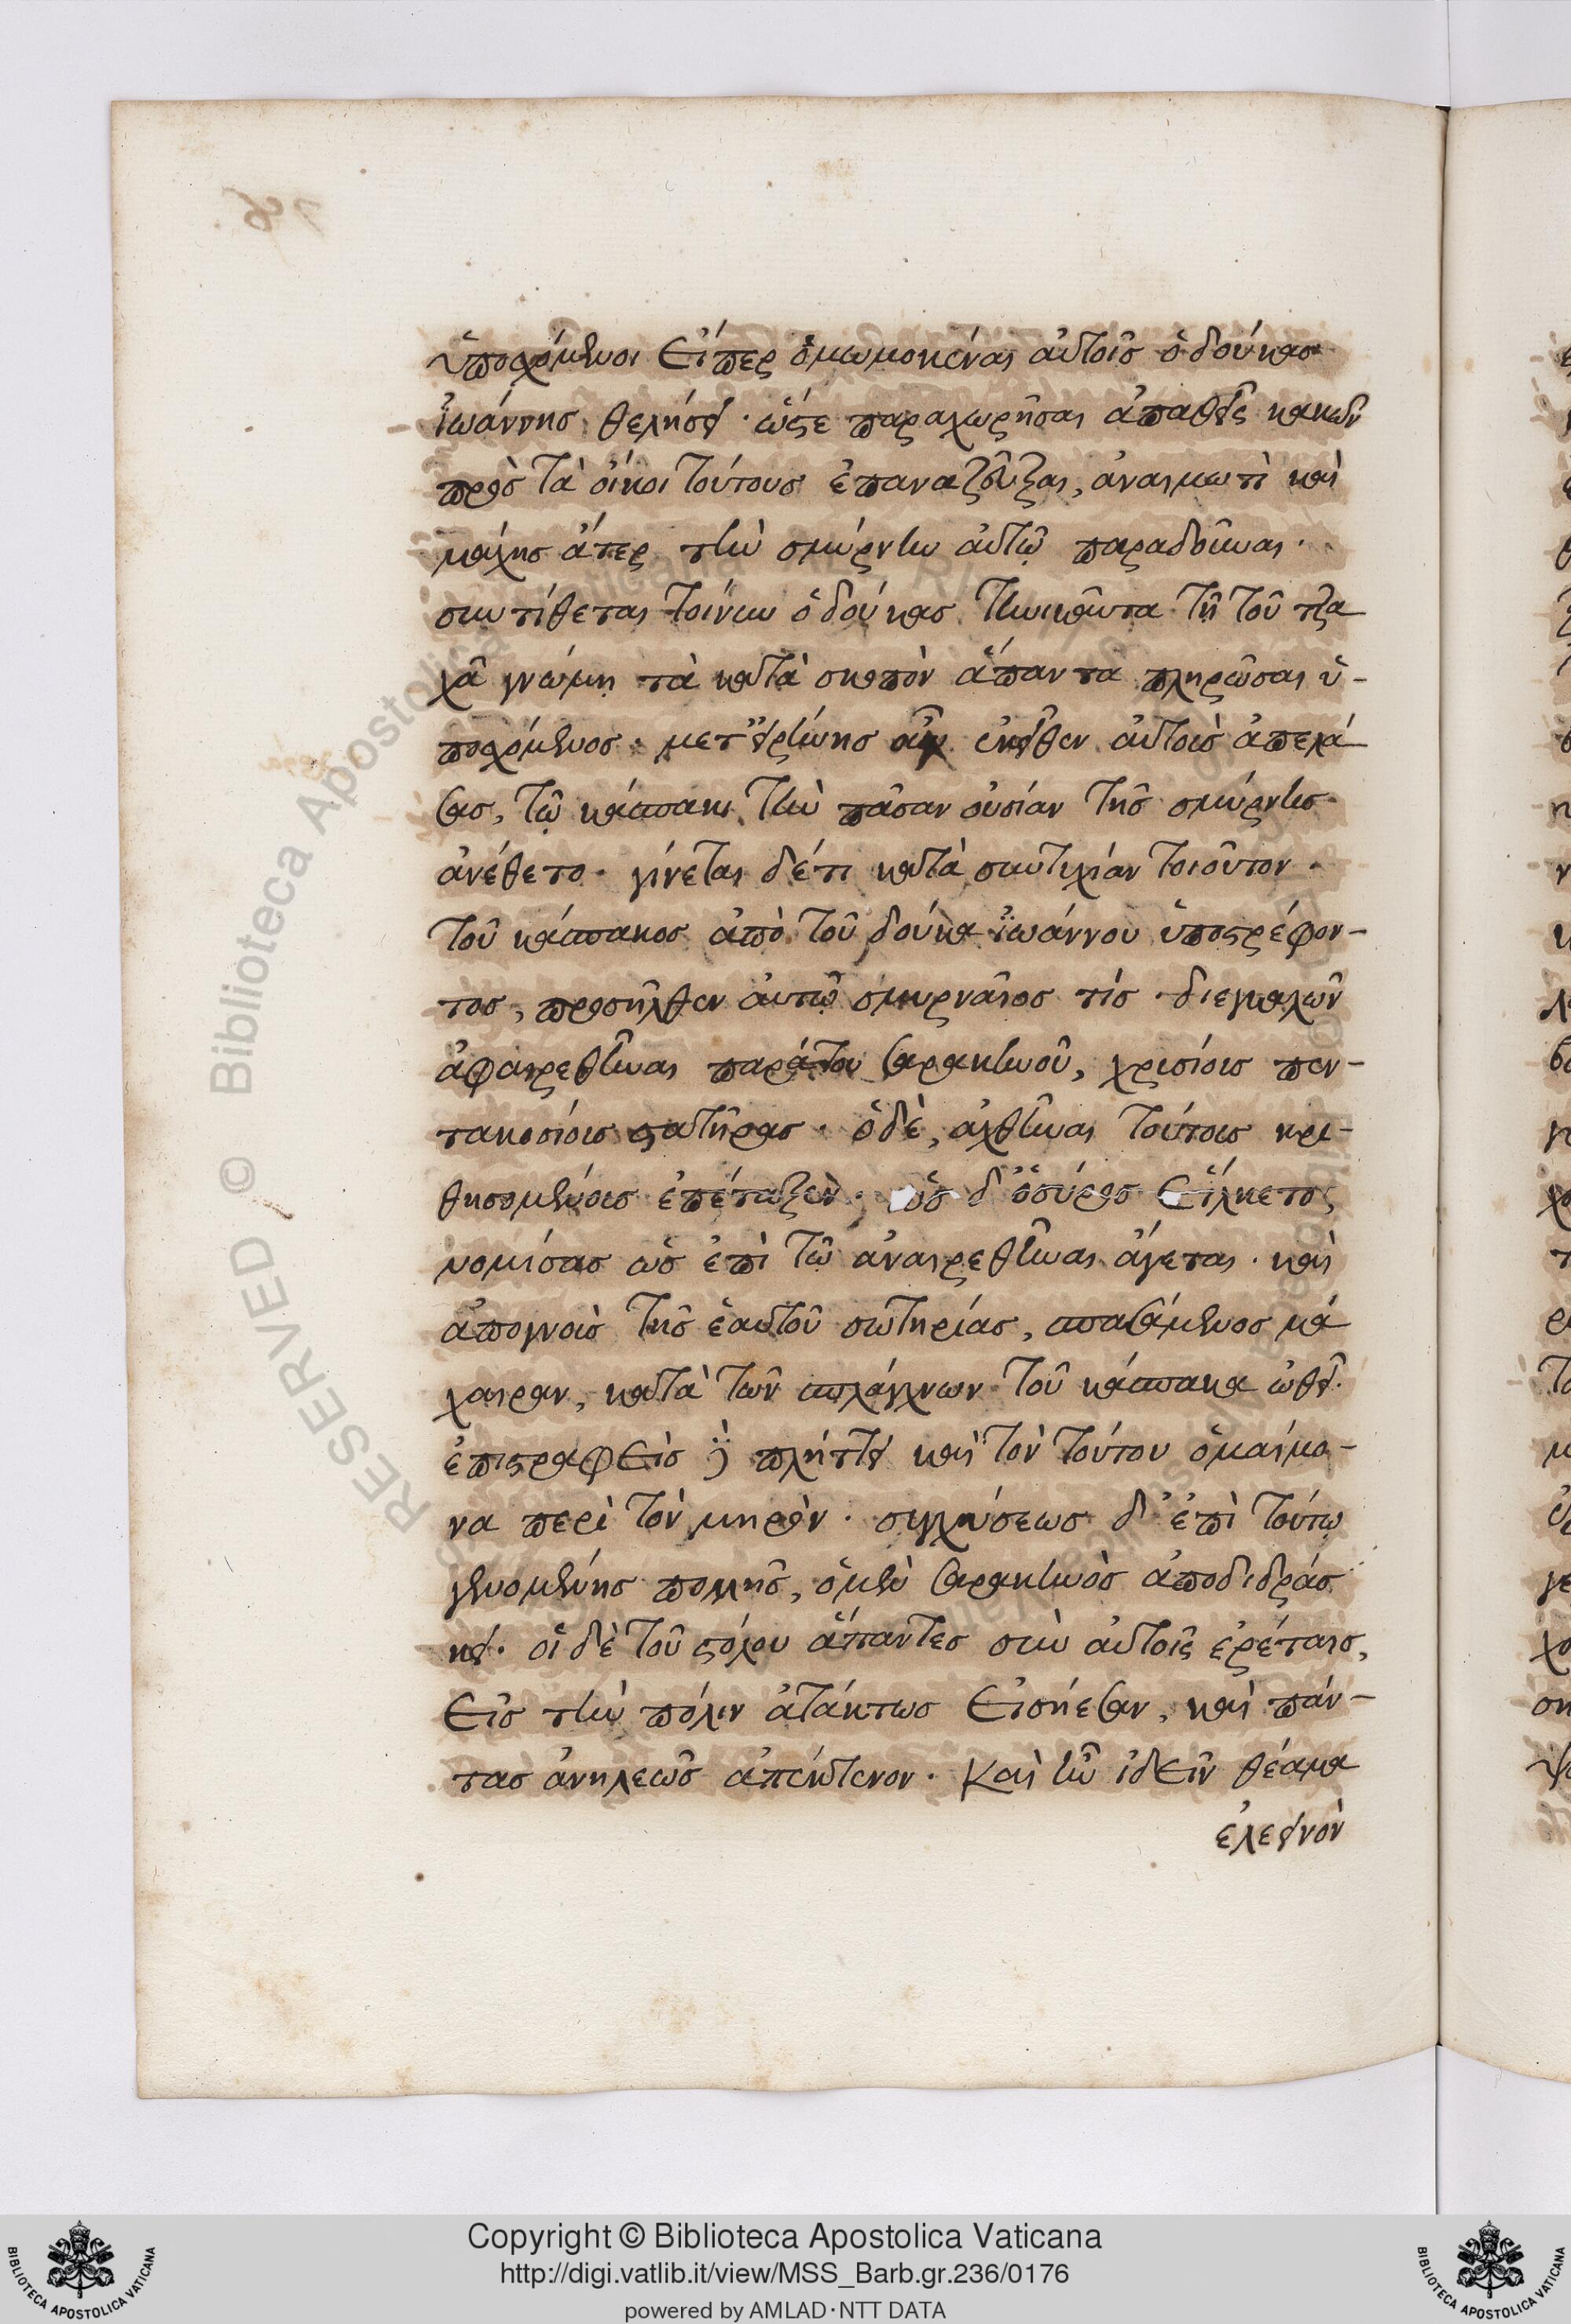 ὑποσχόμενοι εἴπερ ὀμωμοκέναι αὐτοῖς ὁ δούκας
ἰωάννης θελήσει· ὥστε παραχωρῆσαι ἀπαθεῖς κακῶν
πρὸς τὰ οἴκοι τούτους ἐπαναζεῦξαι, ἀναιμωτὶ καὶ
μάχης ἄτερ τὴν σμύρνην αὐτῷ παραδοῦναι·
συντίθεται τοίνυν ὁ δούκας τηνικαῦτα τῇ τοῦ τζα
χᾶ γνώμῃ τὰ κατὰ σκοπὸν ἅπαντα πληρῶσαι ὑ-
ποσχόμενος· μετ' εἰρήνης οὖν ἐκεῖθεν αὐτοὺς ἀπελά
σας, τῷ κάσπακι τὴν πᾶσαν οὐσίαν τῆς σμύρνης
ἀνέθετο· γίνεται δέ τι κατὰ συντυχίαν τοιοῦτον·
τοῦ κάσπακος ἀπὸ τοῦ δούκα ἰωάννου ὑποστρέφον-
τος, προσῆλθεν αὐτῷ σμυρναῖος τίς· διεγκαλῶν
ἀφαιρεθῆναι παρά του σαρακηνοῦ, χρυσίοις πεν-
τακοσίοις στατῆρας· ὁ δὲ, ἀχθῆναι τούτοις κρι-
θησομένοις ἐπέταξεν· ὡς δ' ὁ σύρος εἵλκετο
νομίσας ὡς ἐπὶ τῷ ἀναιρεθῆναι ἄγεται· καὶ
ἀπογνοὺς τῆς ἑαυτοῦ σωτηρίας, σπασάμενος μά
χαιραν, κατὰ τῶν σπλάγχνων τοῦ κάσπακα ὠθεῖ·
ἐπιστραφεὶς δὲ πλήττει καὶ τὸν τούτου ὁμαίμο-
να περὶ τὸν μηρὸν· συγχύσεως δ' ἐπὶ τούτῳ
γενομένης πολλῆς, ὁ μὲν σαρακηνὸς ἀποδιδράσ
κει· οἱ δὲ τοῦ στόλου ἅπαντες σὺν αὐτοῖς ἐρέταις,
εἰς τὴν πόλιν ἀτάκτως εἰσήεσαν, καὶ πάν-
τας ἀνηλεῶς ἀπέκτενον· Καὶ ἦν ἰδεῖν θέαμα
ἐλεεινὸν
RESERVED © Biblioteca Apostolica Vaticana
Copyright © Biblioteca Apostolica Vaticana
http://digi.vatlib.it/view/MSS_Barb.gr.236/0176
powered by AMLAD·NTT DATA
BIBLIOTECA APOSTOLICA VATICANA
BIBLIOTECA APOSTOLICA VATICANA